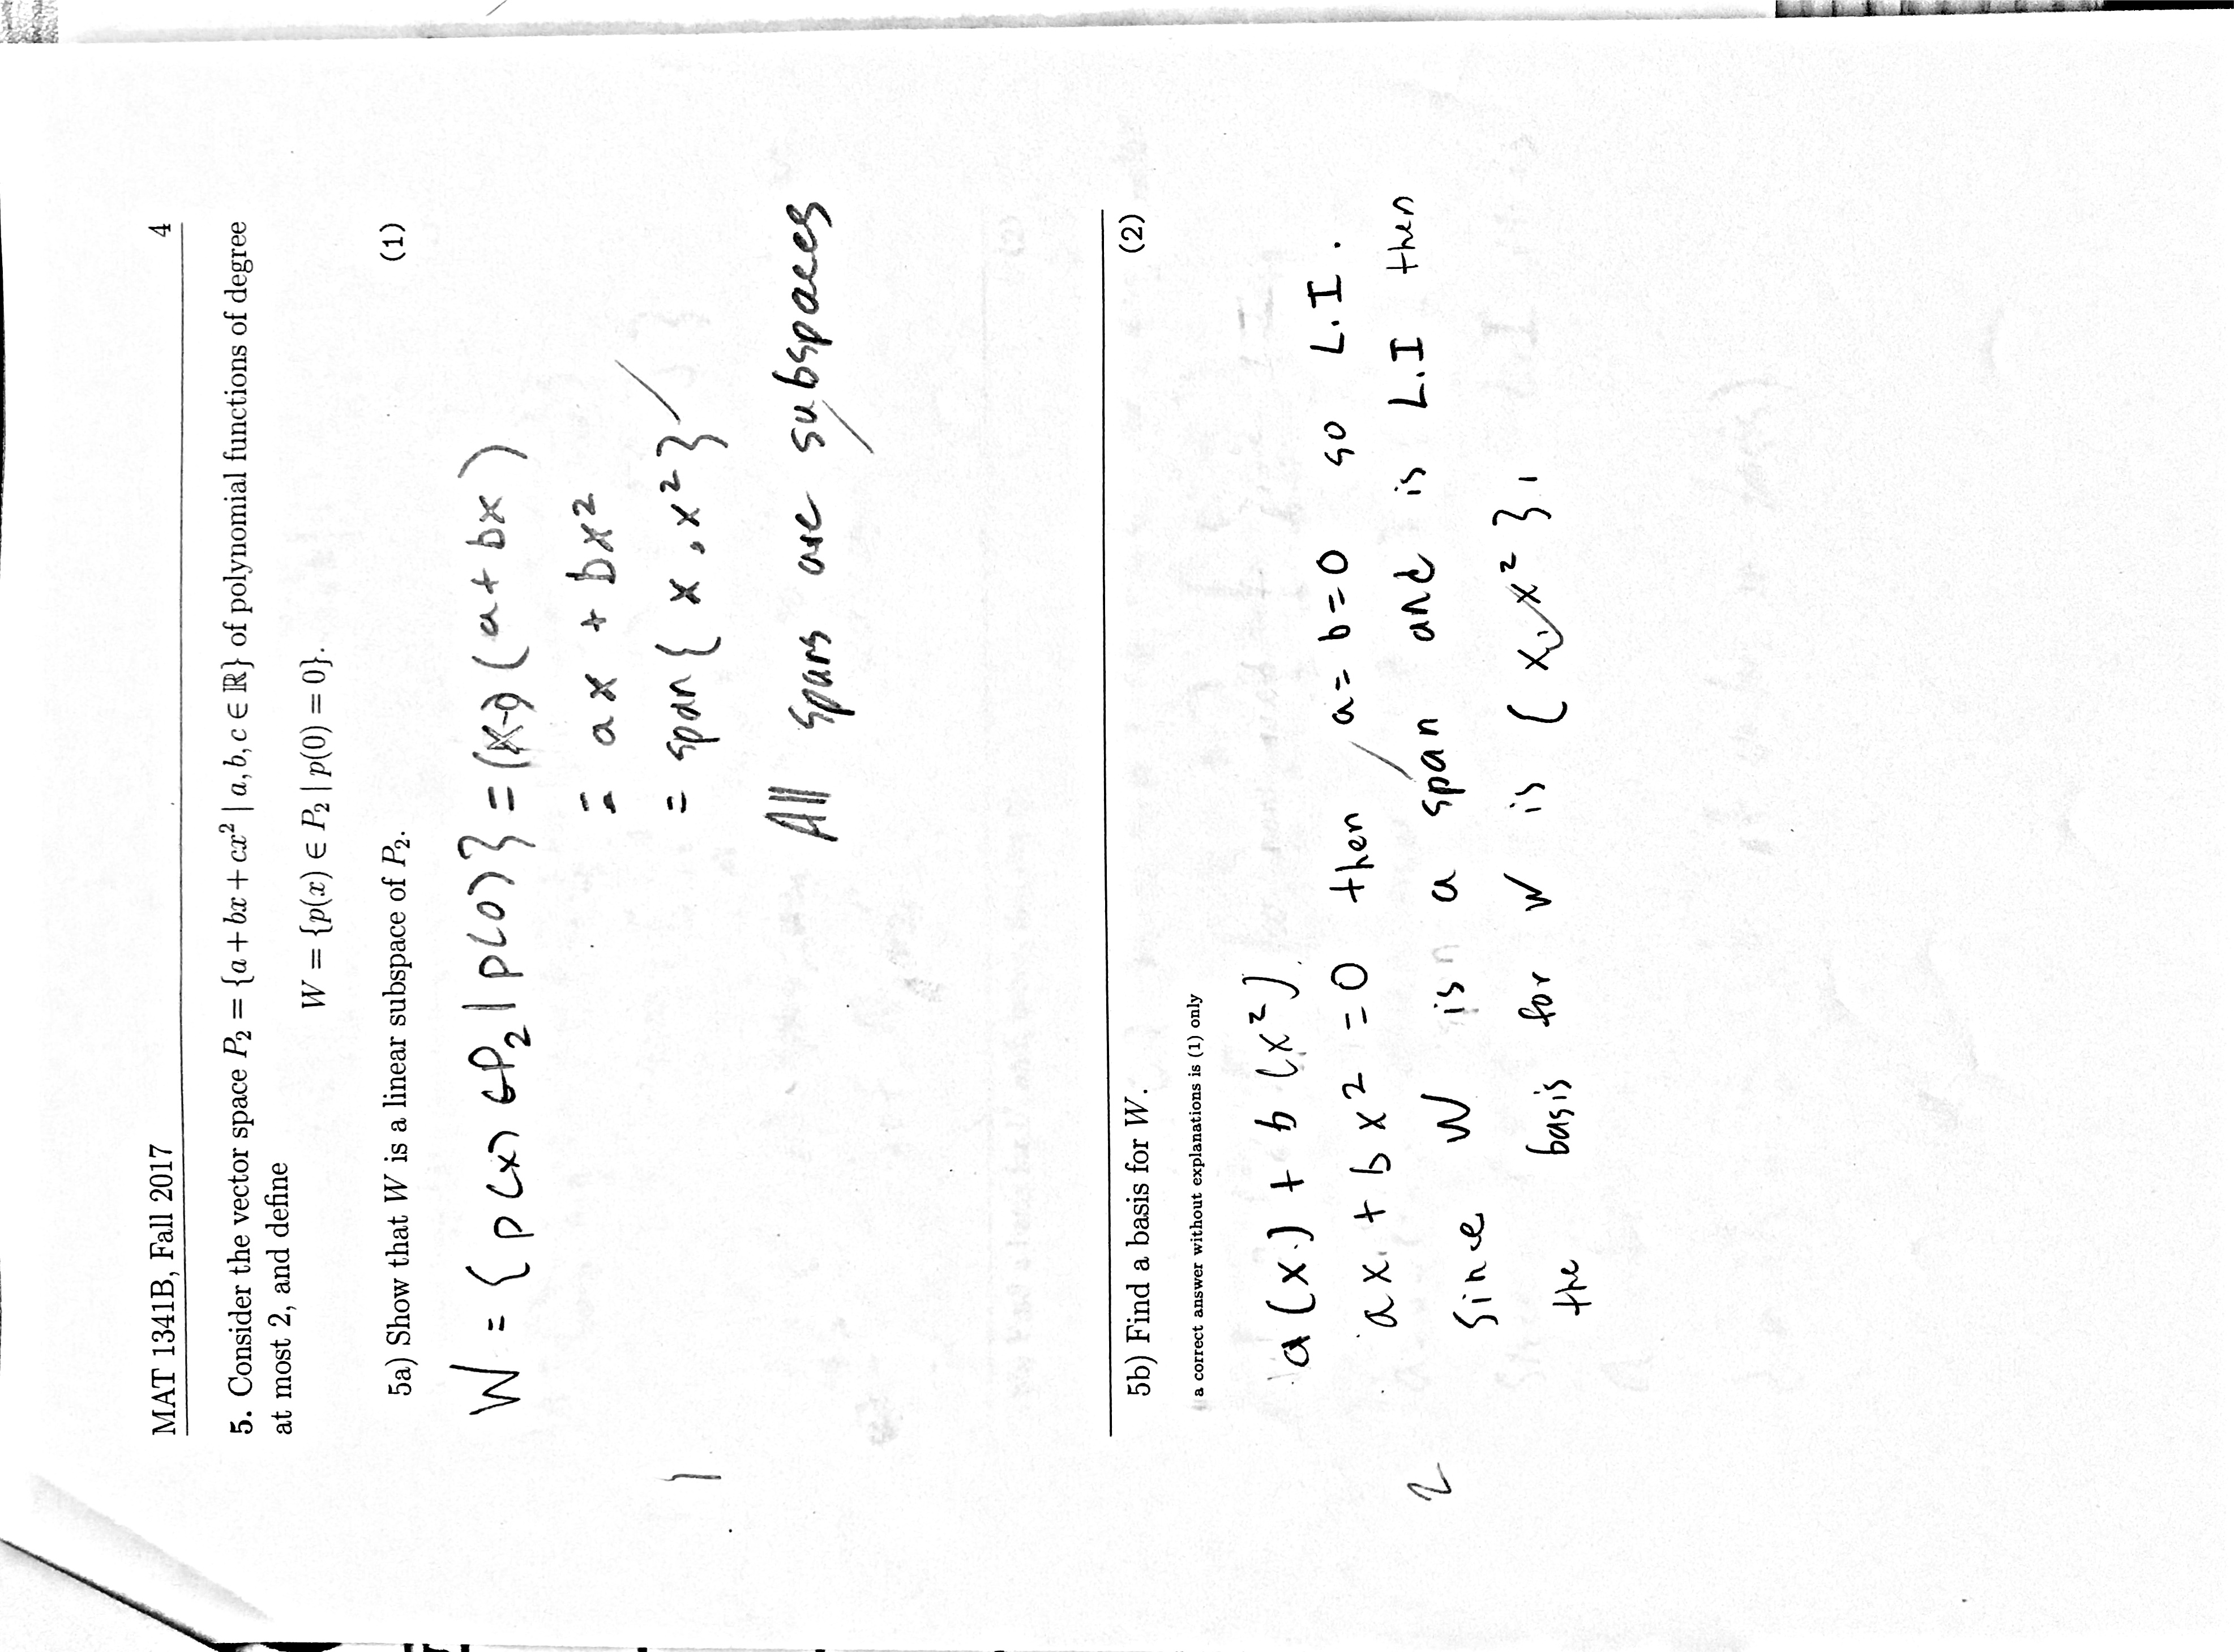 MAT 1341B, Fall 2017 4
5. Consider the vector space P₂ = {a + bx + cx² | a, b, c ∈ ℝ} of polynomial functions of degree
at most 2, and define
W = {p(x) ∈ P₂ | p(0) = 0}.
5a) Show that W is a linear subspace of P₂. (1)
W = {p(x) ∈ P₂ | p(0)} = (x-0)(a + bx)
= ax + bx²
= span{x, x²}
1
All spans are subspaces
5b) Find a basis for W. (2)
a correct answer without explanations is (1) only
a(x) + b(x²)
ax + bx² = 0 then a = b = 0 so L.I.
2
Since W is a span and is L.I then
the basis for W is {x, x²},